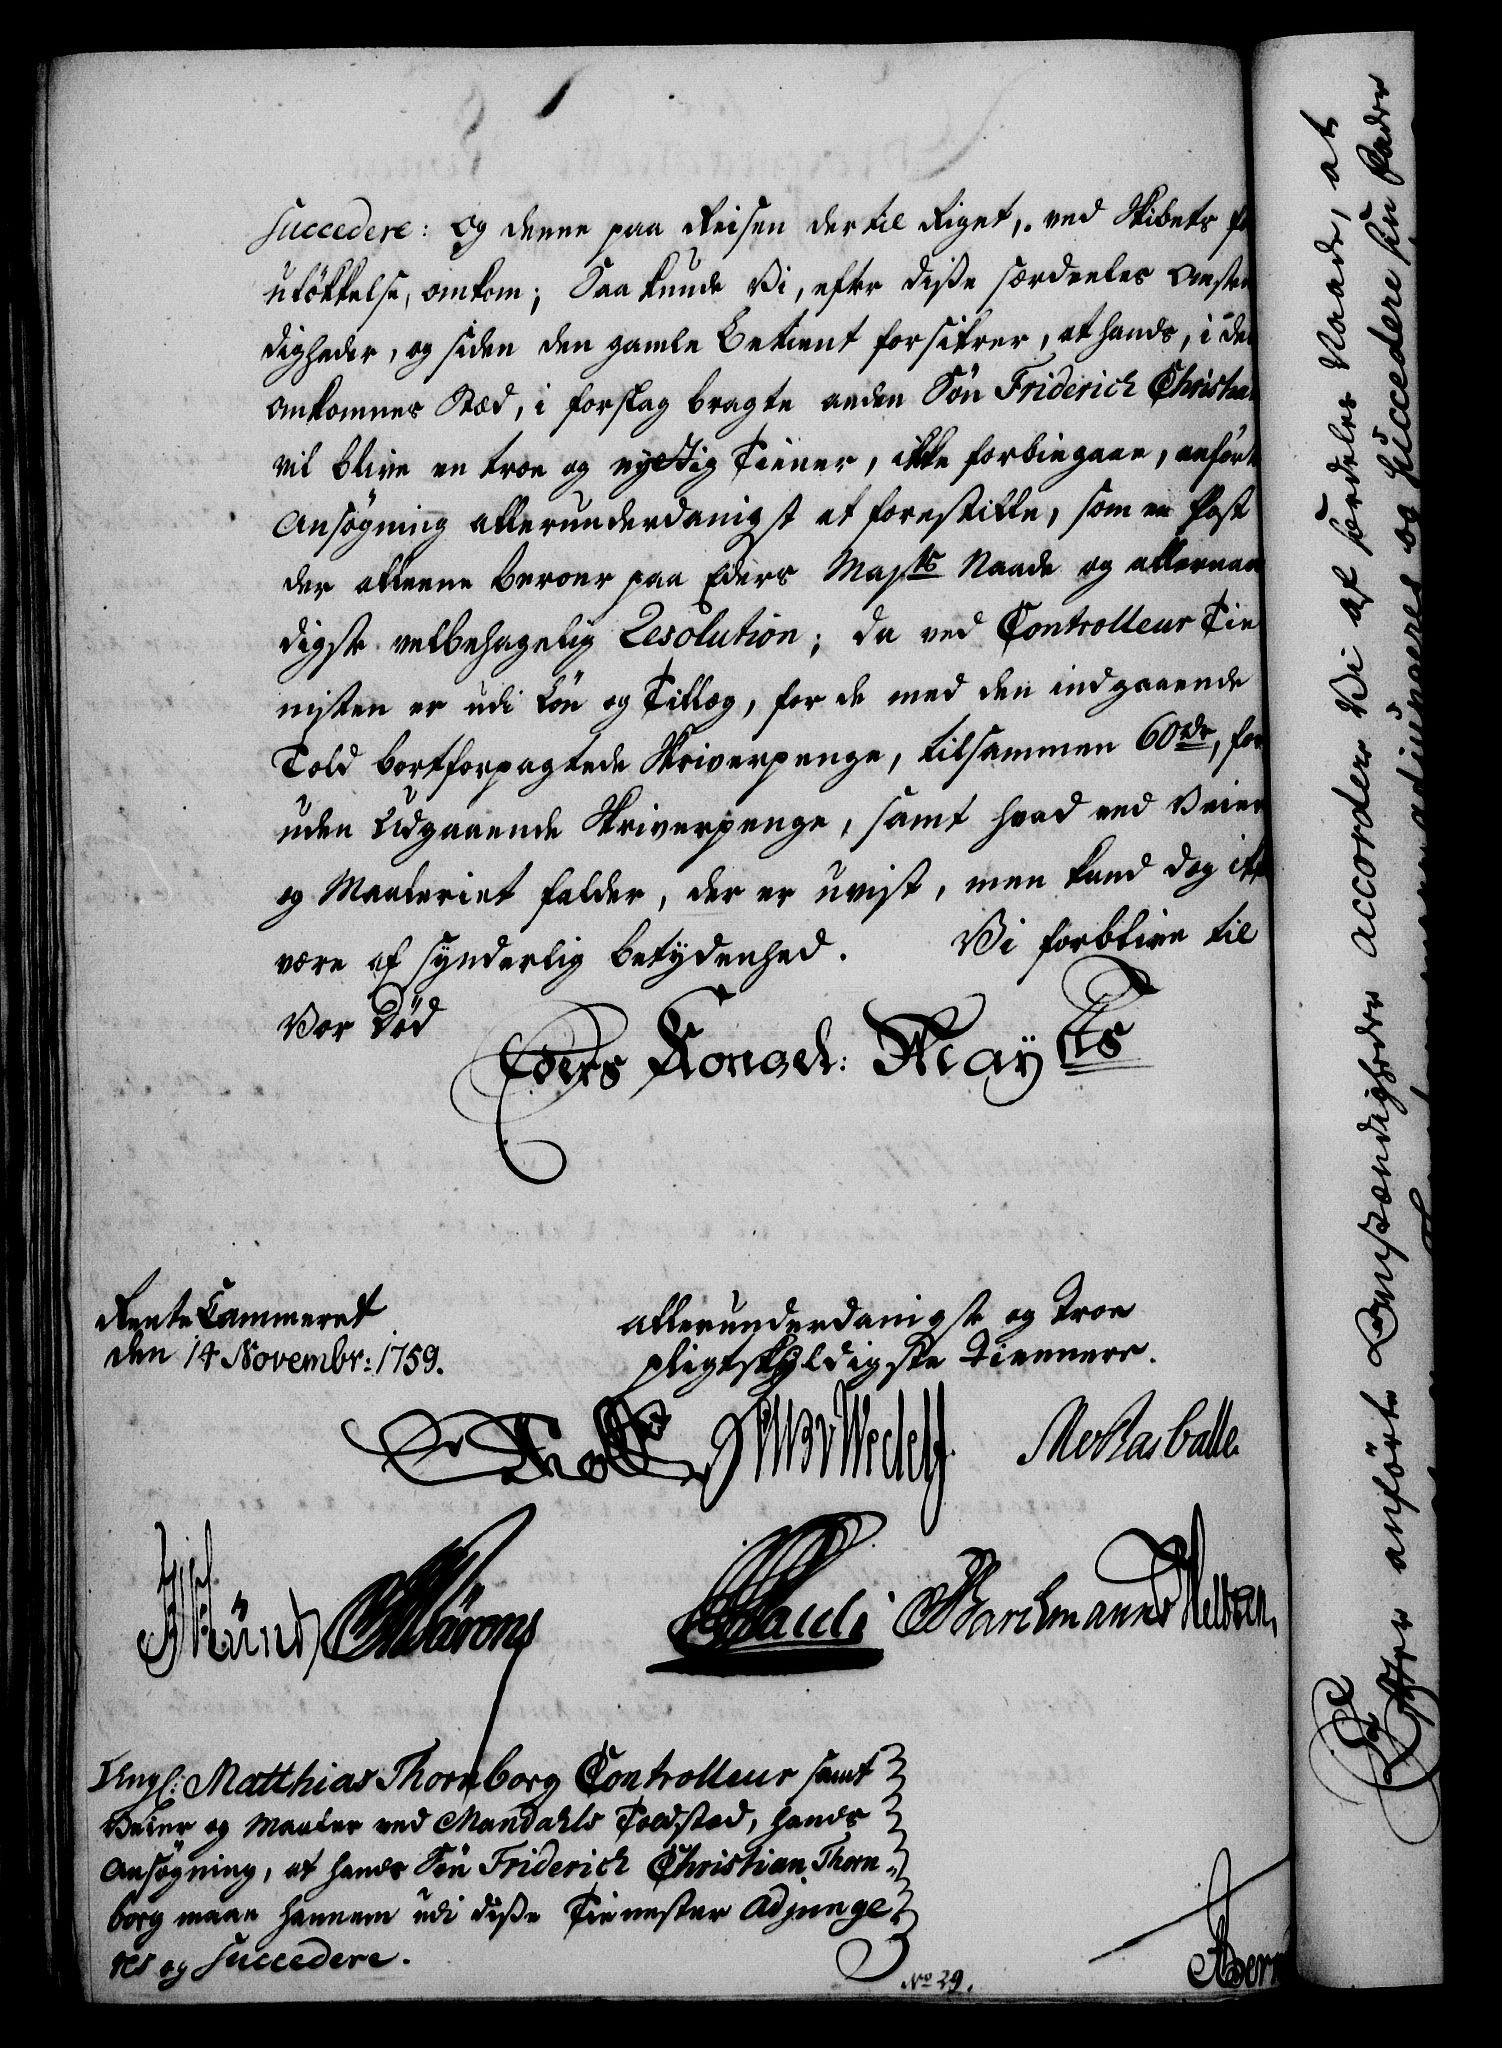 Succedere: og denne paa Reisen der til Riget, ved Skibets
ulökkelse, omkom; Saa kunde Vi, efter disse særdeeles Omstæn
digheder, og siden den gamle Betient forsikrer, at hands, i den
omkomnes Stæd, i forslag bragte anden Sön Friderich Christian
vil blive en troe og nyttig Tiener, ikke forbiegaae, anförte
Ansögning allerunderdanigst at forestille, som en Post
der alleene beroer paa Eders Majts Naade og allernaa
digste velbehagelig Resolution; da ved Controlleur Tie
nisten er udi Lön og Tillæg, for de med den indgaaende
Told bortforpagtede Skriverpenge, tilsammen 60 rdr, for
uden Udgaaende Skriverpenge, samt hvad ved Veier
og Maaleriet falder, der er uvist, men kand dog ikke
være af synderlig betydenhed. Vi forblive til
Vor Död
Eders Kongel: Mayts
Rente Cammeret
den 14 Novembr: 1759.
allerunderdanigst og troe
pligtskyldigste Tiennere.
Holst Wedell
Pauli Barchmann
Angl: Matthias Thornborg Controlleur samt
Veier og Maaler ved Mandahls Toldsted, hands
Ansögning, at hands Sön Friderich Christian Thorn-
borg maae hannem udi disse Tienester Adjunge
res og Succedere.
No 29.
Efter anförte Omstændigheder accorderer Vi af særdeles Naade, at
adjungeres og Succedere sin Fader